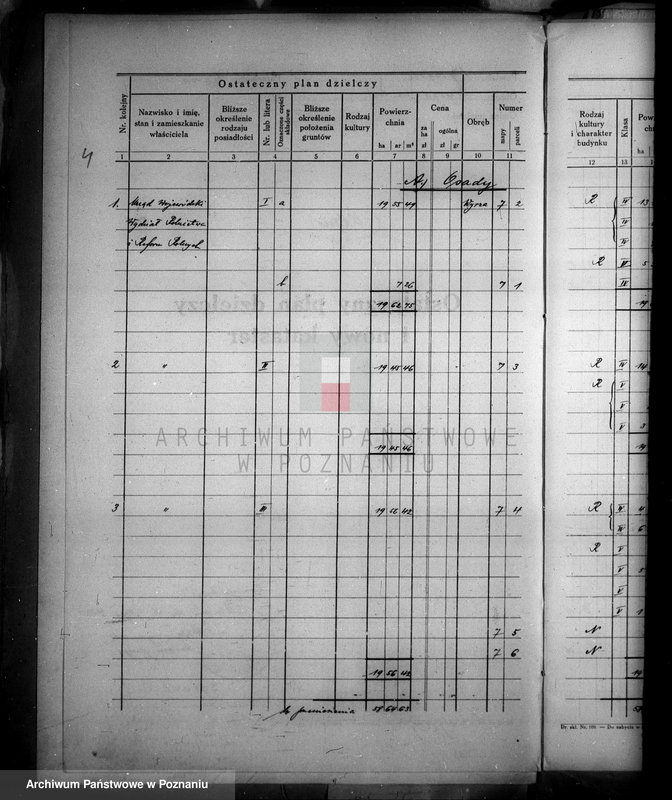 4
Ostateczny plan dzielczy
Nr. kolejny
Nazwisko i imię, stan i zamieszkanie właściciela
Bliższe określenie rodzaju posiadłości
Nr. lub litera
Oznaczenie części składowej
Bliższe określenie położenia gruntów
Rodzaj kultury
Powierzchnia
ha ar m²
Cena
za ha zł
ogólna zł gr
Obręb
Numer
mapy parceli
Rodzaj kultury i charakter budynku
Klasa
1 2 3 4 5 6 7 8 9 10 11 12 13
A) Osady
1. Urząd Wojewódzki I a 19 55 49 7 2 R IV 13
Wydział Rolnictwa IV
i Reform Rolnych
R IV 5
b 7 26 7 1 IV
19 62 75 19
2 " II 19 45 46 7 3 R IV 14
R V
V
V 3
ARCHIWUM PAŃSTWOWE
W POZNANIU
19 45 46 19
3 " III 19 56 42 7 4 R 4
6
R V
V 5
V
V 1
7 5 N
7 6 N
19 56 42 19
do przeniesienia 58 64 63 58
Archiwum Państwowe w Poznaniu